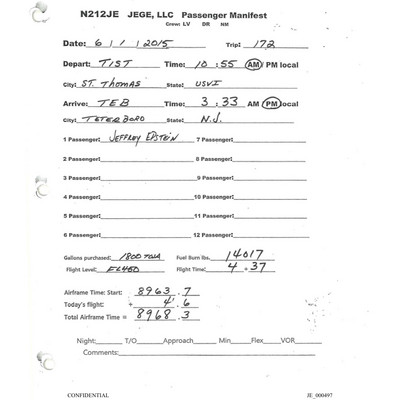 N212JE JEGE, LLC Passenger Manifest
Crew: LV DR NM
Date: 6 / 1 / 2015 Trip: 172
Depart: TIST Time: 10 : 55 AM PM local
City: ST. THOMAS State: USVI
Arrive: TEB Time: 3 : 33 AM PM local
City: TETERBORO State: N.J.
1 Passenger: JEFFREY EPSTEIN 7 Passenger:
2 Passenger: 8 Passenger:
3 Passenger: 9 Passenger:
4 Passenger: 10 Passenger:
5 Passenger: 11 Passenger:
6 Passenger: 12 Passenger:
Gallons purchased: 1800 Fuel Burn lbs. 14017
Flight Level: FL450 Flight Time: 4 : 37
Airframe Time: Start: 8963 . 7
Today's flight: + 4 . 6
Total Airframe Time = 8968 . 3
Night: T/O Approach Min Flex VOR
Comments:
CONFIDENTIAL JE_000497